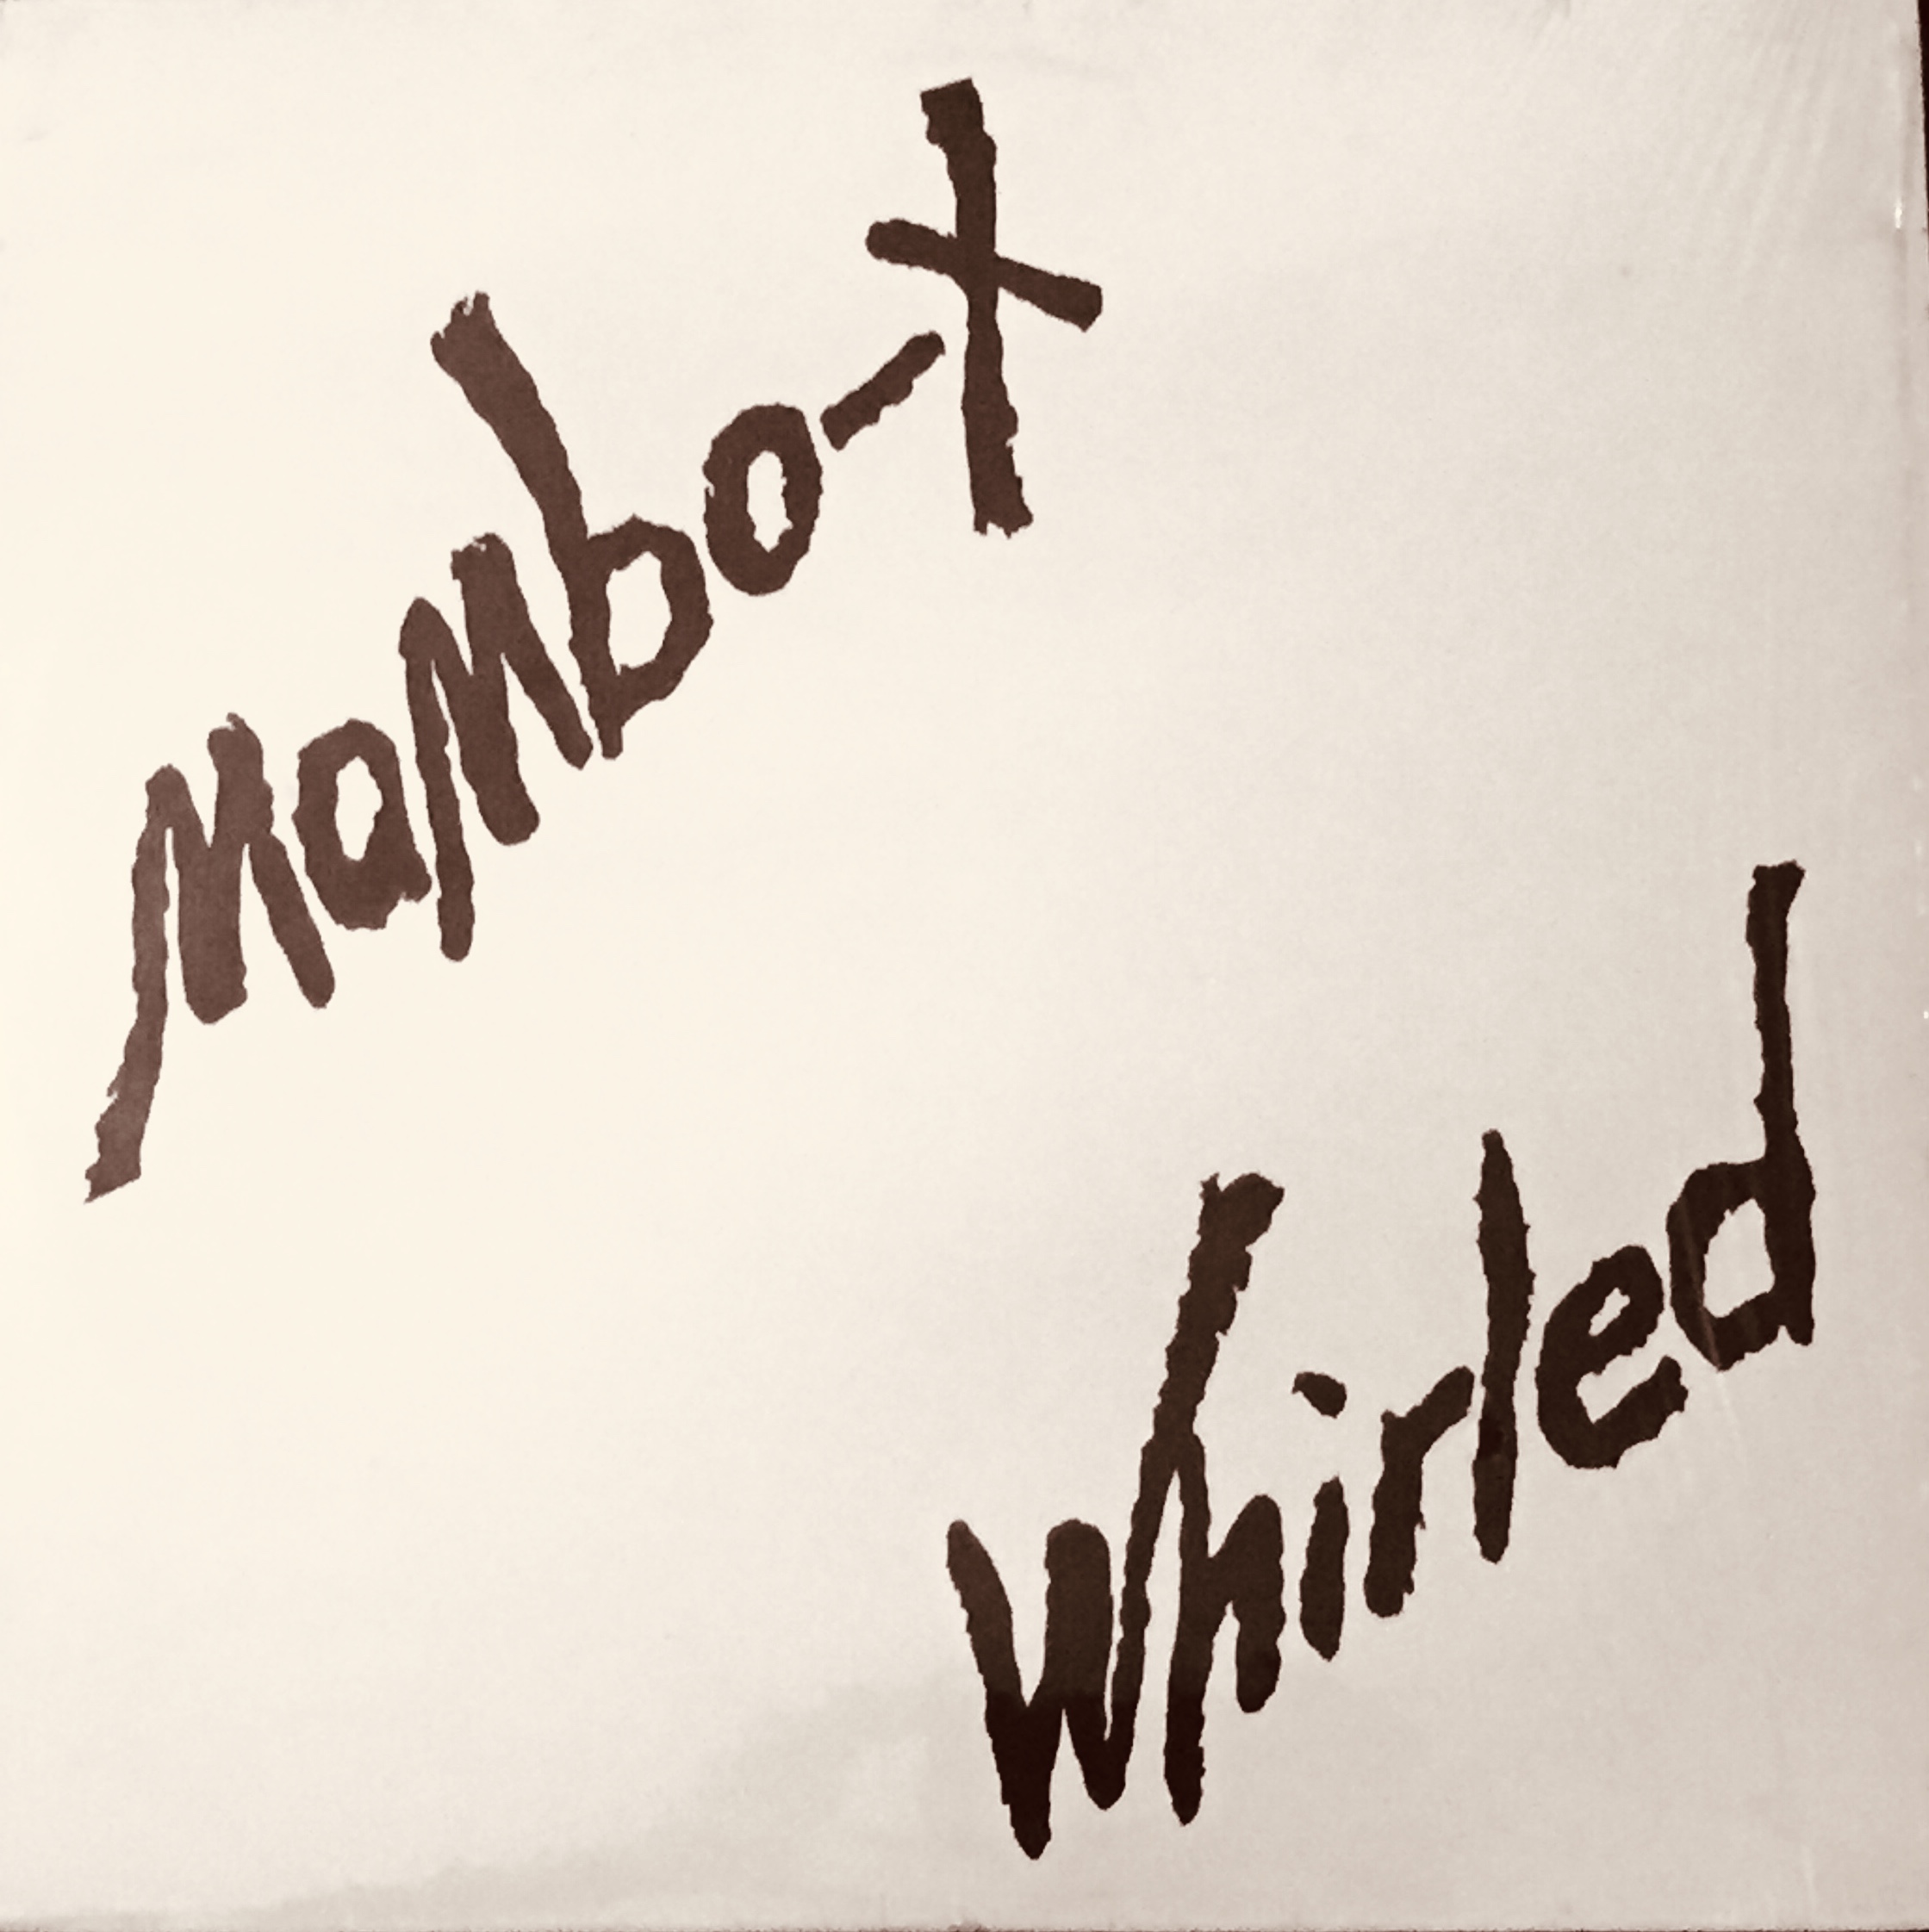 Mambo-X
Whirled